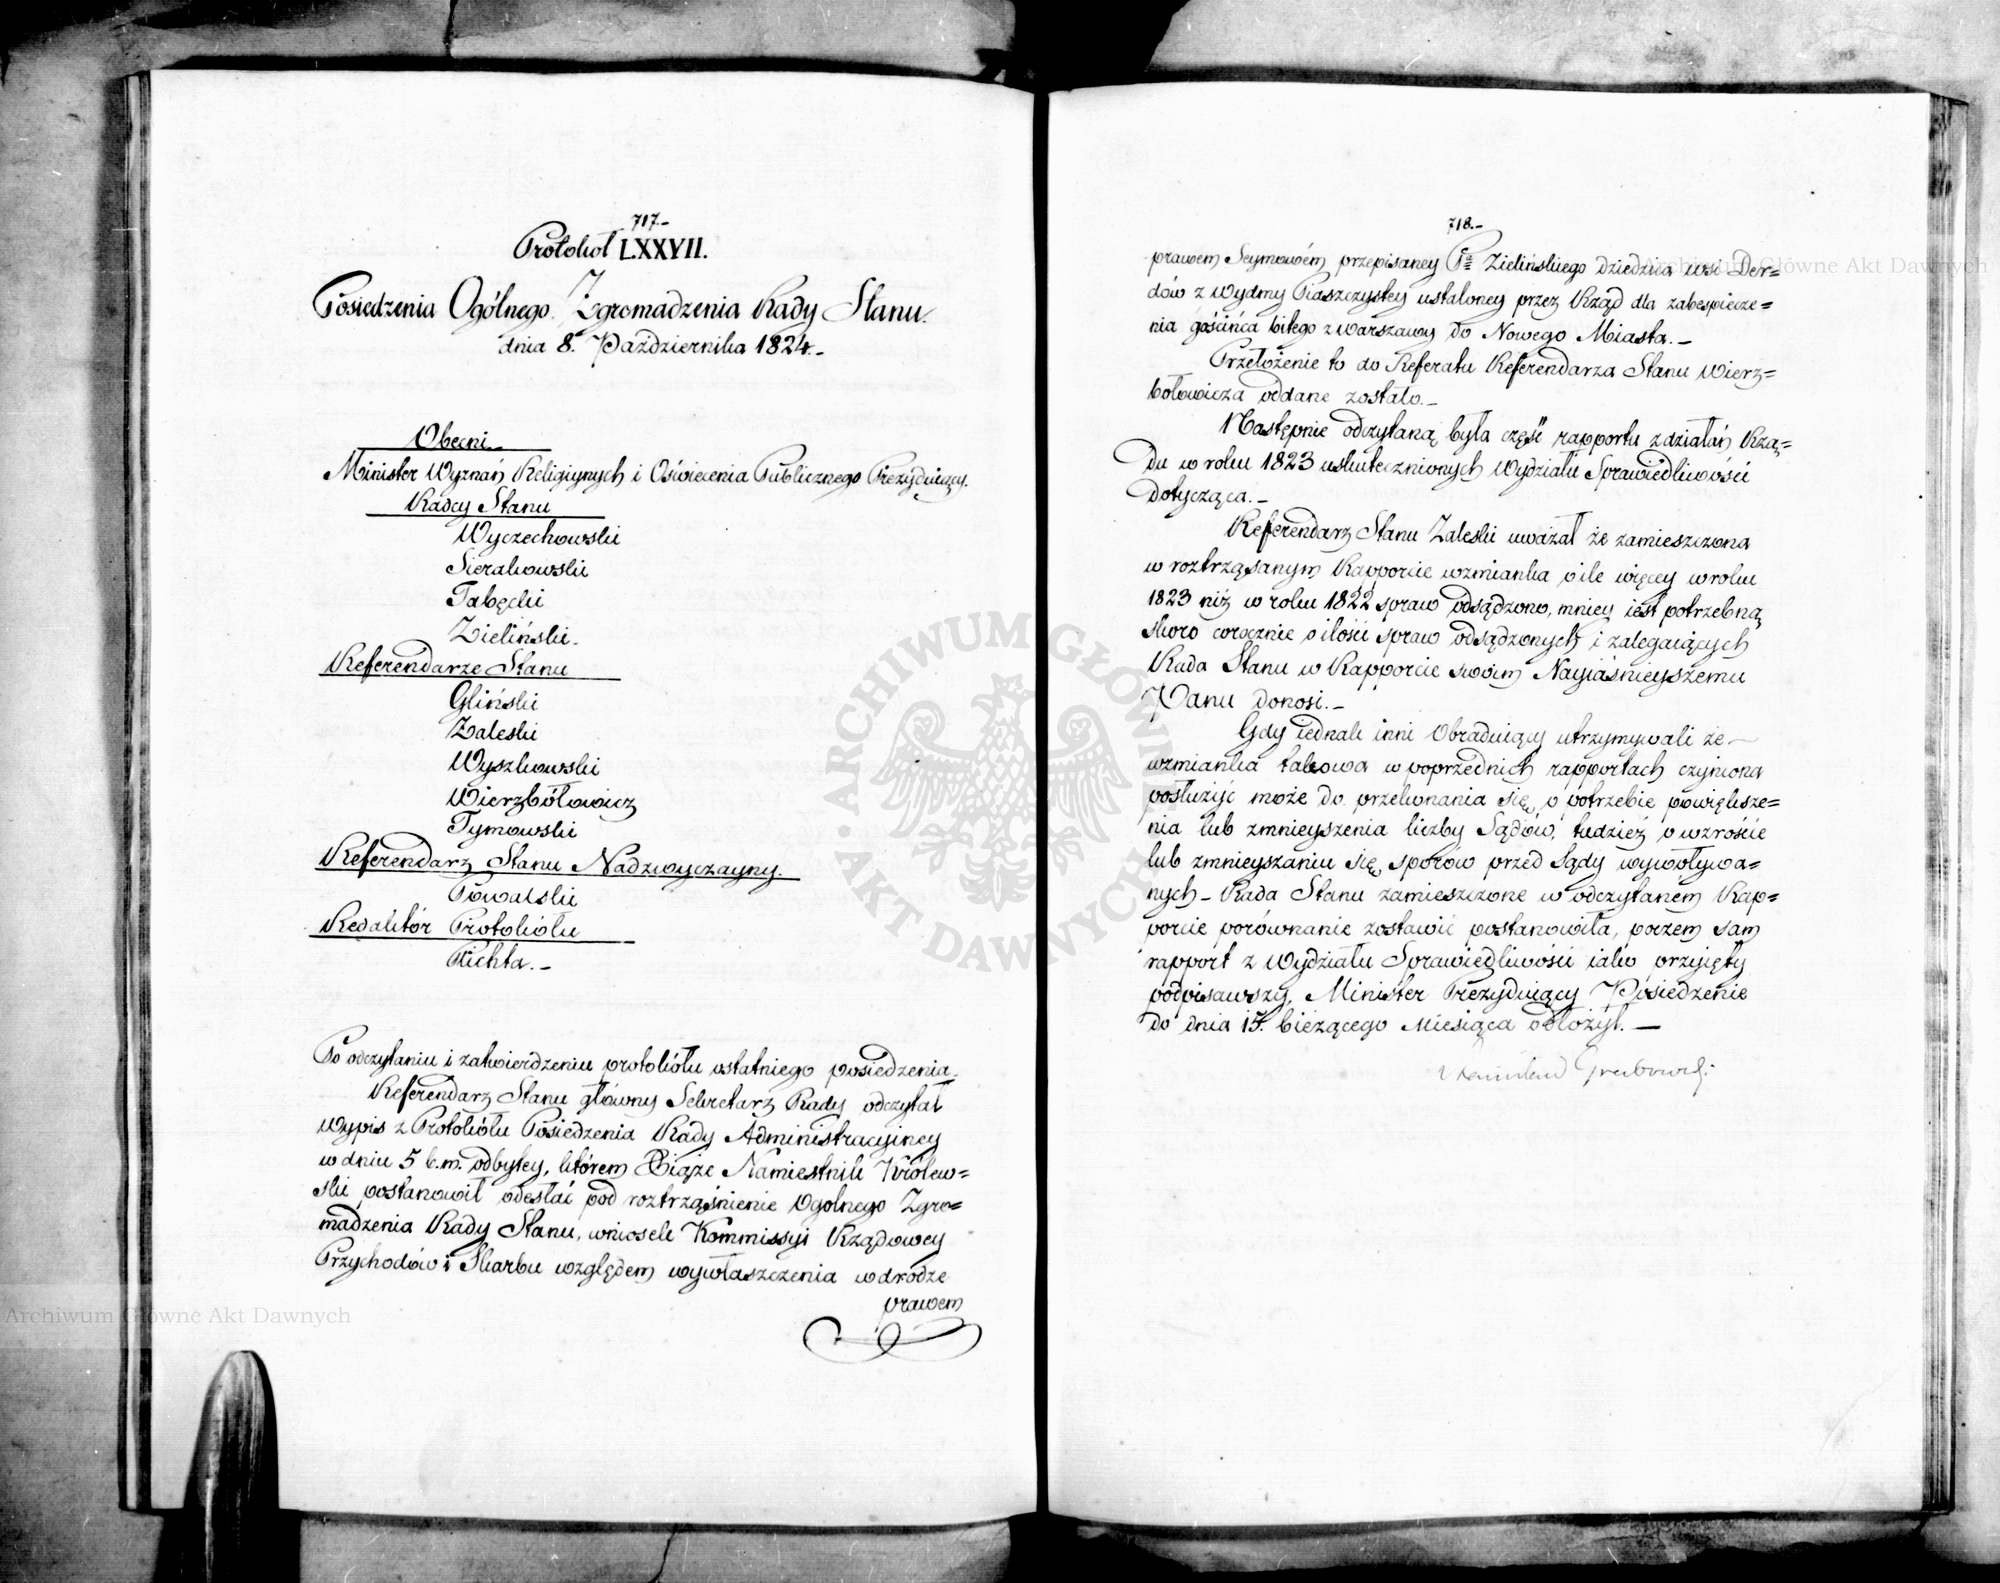 717.-
Protokół LXXVII.
Posiedzenia Ogólnego Zgromadzenia Rady Stanu.
dnia 8. Października 1824.-
Obecni
Minister Wyznań Religijnych i Oświecenia Publicznego Prezyduiący.
Radcy Stanu
Wyczechowski
Sierakowski
Tabęcki
Zieliński.
Referendarze Stanu
Gliński
Zaleski
Wyszkowski
Wierzbółowicz
Tymowski
Referendarz Stanu Nadzwyczayny.
Kowalski
Redaktór Protokółu
Richta.-
Po odczytaniu i zatwierdzeniu protokółu ostatniego posiedzenia.
Referendarz Stanu główny Sekretarz Rady odczytał
Wypis z Protokółu Posiedzenia Rady Administracyiney
w dniu 5 b.m. odbytey, którem Xiąże Namiestnik Królew=
ski postanowił odesłać pod roztrząśnienie Ogolnego Zgro=
madzenia Rady Stanu, wniosek Kommissyi Rządowey
Przychodów i Skarbu względem wywłaszczenia w drodze
prawem
718.-
prawem Seymowém przepisaney Pa Zielińskiego dziedzica wsi Der=
dów z Wydmy Piaszczystey ustaloney przez Rząd dla zabespiecze=
nia gościńca bitego z Warszawy do Nowego Miasta.-
Przełożenie to do Referatu Referendarza Stanu Wierz=
bołowicza oddane zostało.-
Następnie odczytaną była część rapportu z działań Rzą=
du w roku 1823 uskutecznionych Wydziału Sprawiedliwości
dotycząca.-
Referendarz Stanu Zaleski uważał że zamieszczona
w roztrząsanym Rapporcie wzmianka o ile więcey w roku
1823 niż w roku 1822 spraw odsądzono, mniey iest potrzebną
skoro corocznie o ilości spraw odsądzonych i zalegaiących
Rada Stanu w Rapporcie swoim Nayiaśnieyszemu
Panu donosi.-
Gdy iednak inni Obraduiący utrzymywali że-
wzmianka takowa w poprzednich rapportach czyniona
posłużyć może do przekonania się, o potrzebie powiększe=
nia lub zmnieyszenia liczby Sądów, tudzież o wzroście
lub zmnieyszaniu się, sporów przed Sądy wywoływa=
nych - Rada Stanu zamieszczone w odczytanem Rap=
porcie porównanie zostawić postanowiła, poczem sam
rapport z Wydziału Sprawiedliwości iako przyięty
podpisawszy, Minister Prezyduiący Posiedzenie
do dnia 15. bieżącego Miesiąca odłożył.-
Stanisław Grabowski
ARCHIWUM GŁÓWNE AKT DAWNYCH
Archiwum Główne Akt Dawnych
Archiwum Główne Akt Dawnych